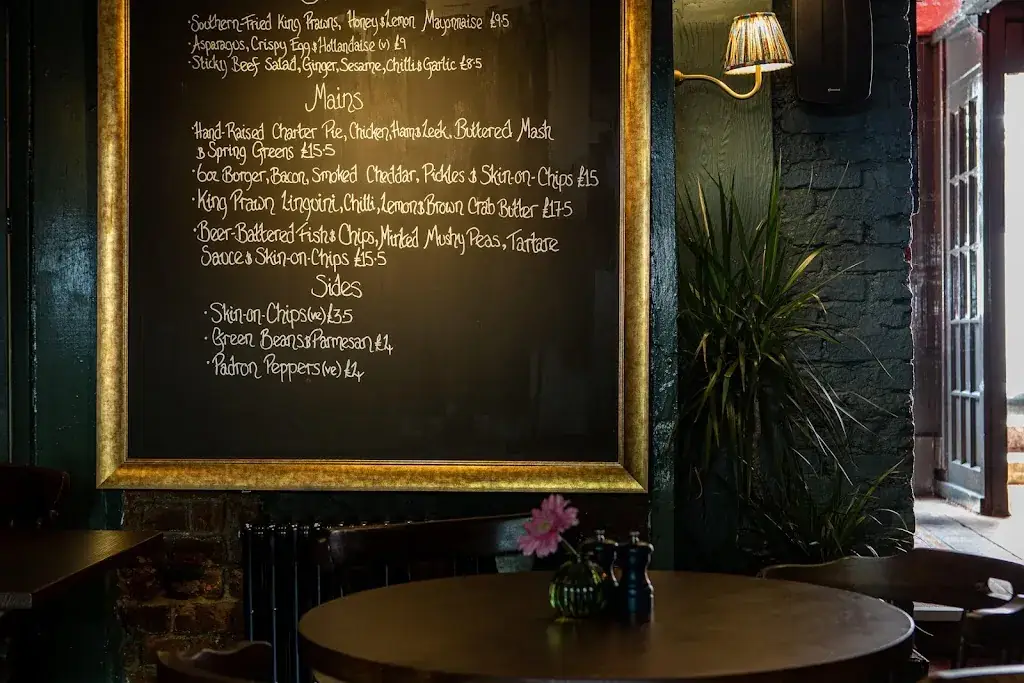 ·Southern-Fried King Prawns, Honey & Lemon Mayonnaise £9·5
·Asparagus, Crispy Egg & Hollandaise (v) £9
·Sticky Beef Salad, Ginger, Sesame, Chilli & Garlic £8·5
Mains
·Hand-Raised Charter Pie, Chicken, Ham & Leek, Buttered Mash
& Spring Greens £15·5
·6oz Borger, Bacon, Smoked Cheddar, Pickles & Skin-on-Chips £15
·King Prawn Linguini, Chilli, Lemon & Brown Crab Butter £17·5
·Beer-Battered Fish & Chips, Minted Mushy Peas, Tartare
Sauce & Skin-on-Chips £15·5
Sides
·Skin-on-Chips (ve) £3·5
·Green Beans & Parmesan £4
·Padron Peppers (ve) £4